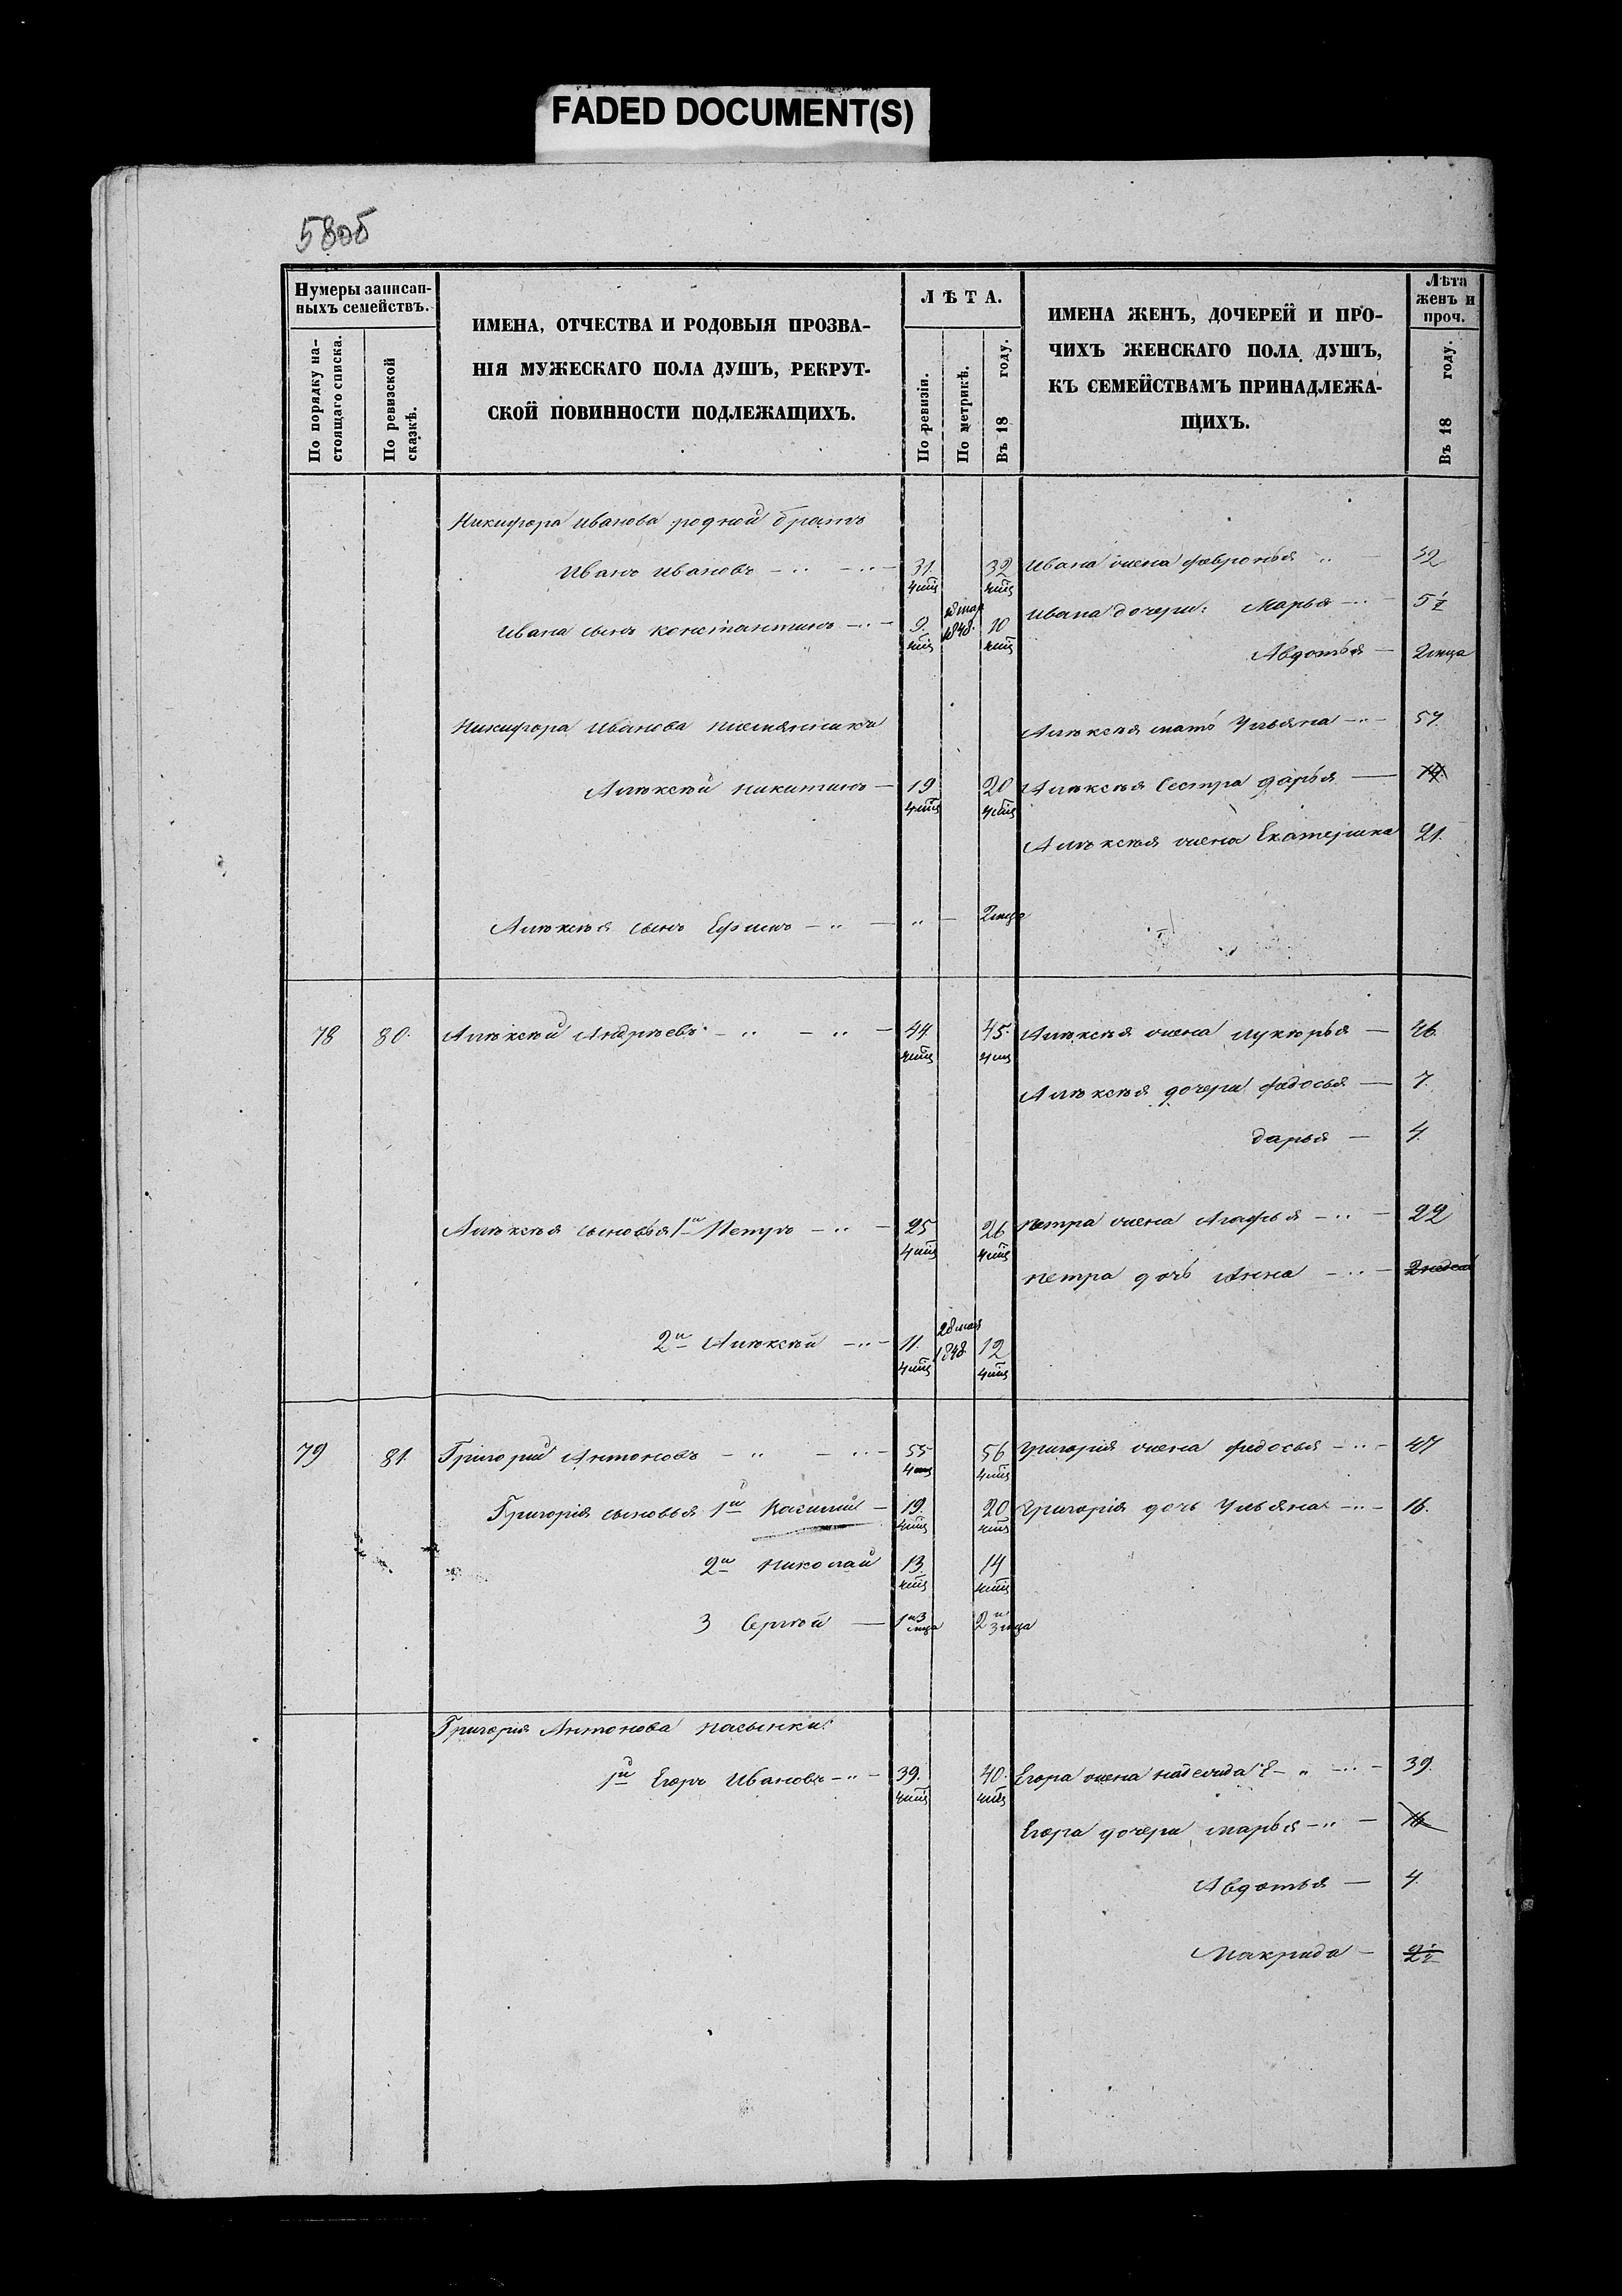 FADED DOCUMENT(S)
58об
Нумеры записан-
ныхъ семействъ.
По порядку на-
стоящаго списка.
По ревизской
сказкѣ.
ИМЕНА, ОТЧЕСТВА И РОДОВЫЯ ПРОЗВА-
НІЯ МУЖЕСКАГО ПОЛА ДУШЪ, РЕКРУТ-
СКОЙ ПОВИННОСТИ ПОДЛЕЖАЩИХЪ.
ЛѢТА.
По ревизіи.
По метрикѣ.
Въ 18 году.
ИМЕНА ЖЕНЪ, ДОЧЕРЕЙ И ПРО-
ЧИХЪ ЖЕНСКАГО ПОЛА ДУШЪ,
КЪ СЕМЕЙСТВАМЪ ПРИНАДЛЕЖА-
ЩИХЪ.
Лѣта
женъ и
проч.
Въ 18 году.
Никифора Иванова родной братъ
Иванъ Ивановъ 31. 32 Ивана жена Февронья 32
Ивана сынъ Константинъ 9. 1848. 10 Ивана дочери: Марья 5½
Авдотья 2 мца
Никифора Иванова племянникъ Алексѣя мать Ульяна 57.
Алексѣй Никитинъ 19 20 Алексѣя сестра Дарья
Алексѣя жена Екатерина 21.
Алексѣя сынъ Ефимъ 2 мца
78 80. Алексѣй Андреевъ 44. 45. Алексѣя жена Лукерья 46.
Алексѣя дочери Фадосья 7.
Дарья 4.
Алексѣя сыновья 1й Петръ 25 26 Петра жена Агафья 22
Петра дочь Анна 2 недел
2й Алексѣй 11. 28 мая 1848 12
79 81. Григорій Антоновъ 55 56 Григорія жена Федосья 47
Григорія сыновья 1й Василій 19. 20 Григорія дочь Ульяна 16.
2й Николай 13. 14
3 Сергѣй 1 и 3 мца 2 и 3 мца
Григорія Антонова пасынки:
1й Егоръ Ивановъ 39. 40. Егора жена Надежда 39.
Егора дочери Марья 16
Авдотья 4.
Макрида 2½